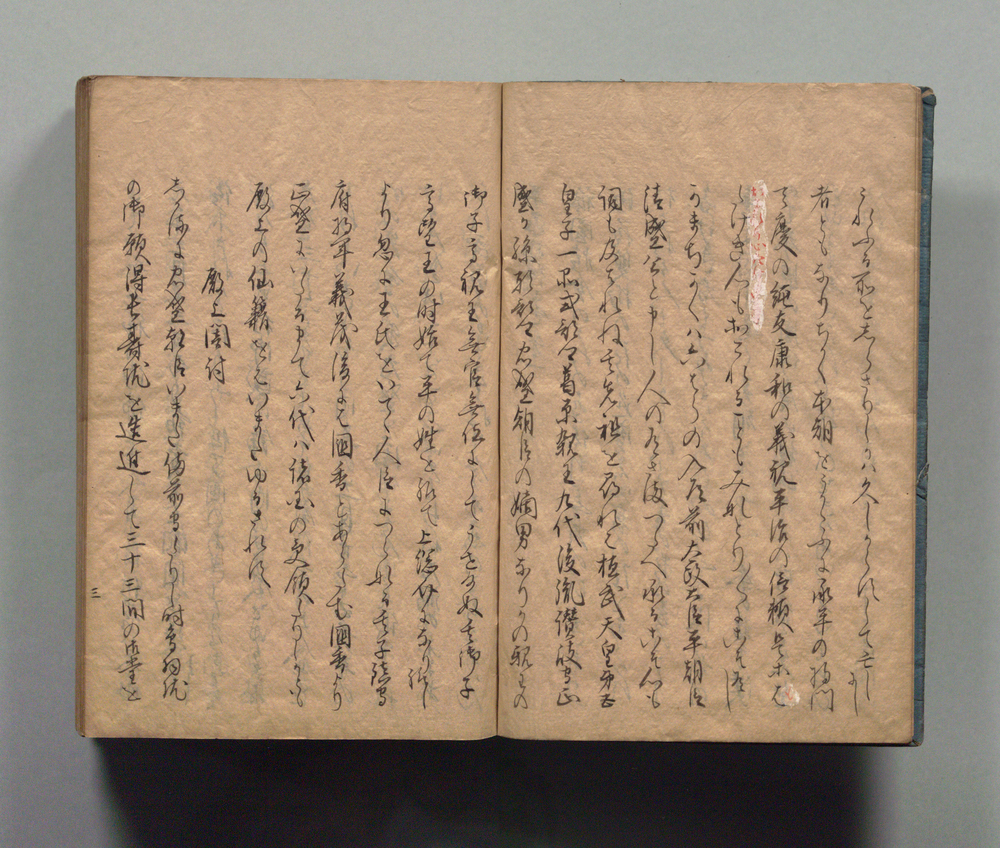 うれふる所をしらさりしかは久しからすして亡し
者ともなりちかく本朝をうかゝふに承平の将門
天慶の純友康和の義親平治の信頼是等は
まちかくは六はらの入道前太政大臣平朝臣
清盛公と申し人のありさまつたへ承るこそ心も
詞も及はれね其先祖を尋れは桓武天皇第五
皇子一品式部卿葛原親王九代後胤讃岐守正
盛か孫刑部卿忠盛朝臣の嫡男なりかの親王の
御子高視王無官無位にしてうせ給ぬ其御子
高望王の時始て平の姓を給て上総介になり給し
より忽に王氏をいてゝ人臣につらなる其子鎮守
府将軍義茂後には国香とあらたむ国香より
正盛にいたるまて六代は諸国の受領たりしかとも
殿上の仙籍をはいまたゆるされす
殿上闇討
しかるに忠盛朝臣いまた備前守たりし時鳥羽院
の御願得長寿院を造進して三十三間の御堂を
三